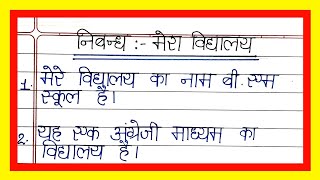 निबन्ध :- मेरा विद्यालय
1. मेरे विद्यालय का नाम बी. एम
स्कूल है।
2. यह एक अंग्रेजी माध्यम का
विद्यालय है।